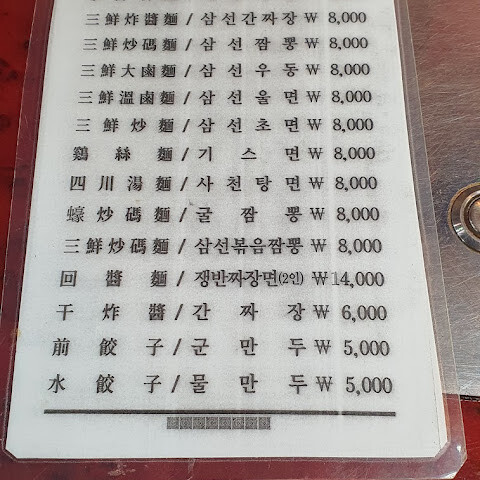 三鮮炸醬麵 / 삼선간짜장 ₩ 8,000
三鮮炒碼麵 / 삼선짬뽕 ₩ 8,000
三鮮大鹵麵 / 삼선우동 ₩ 8,000
三鮮溫鹵麵 / 삼선울면 ₩ 8,000
三鮮炒麵 / 삼선초면 ₩ 8,000
鷄絲麵 / 기스면 ₩ 8,000
四川湯麵 / 사천탕면 ₩ 8,000
蠔炒碼麵 / 굴짬뽕 ₩ 8,000
三鮮炒碼麵 / 삼선볶음짬뽕 ₩ 8,000
回醬麵 / 쟁반짜장면(2인) ₩ 14,000
干炸醬 / 간짜장 ₩ 6,000
前餃子 / 군만두 ₩ 5,000
水餃子 / 물만두 ₩ 5,000